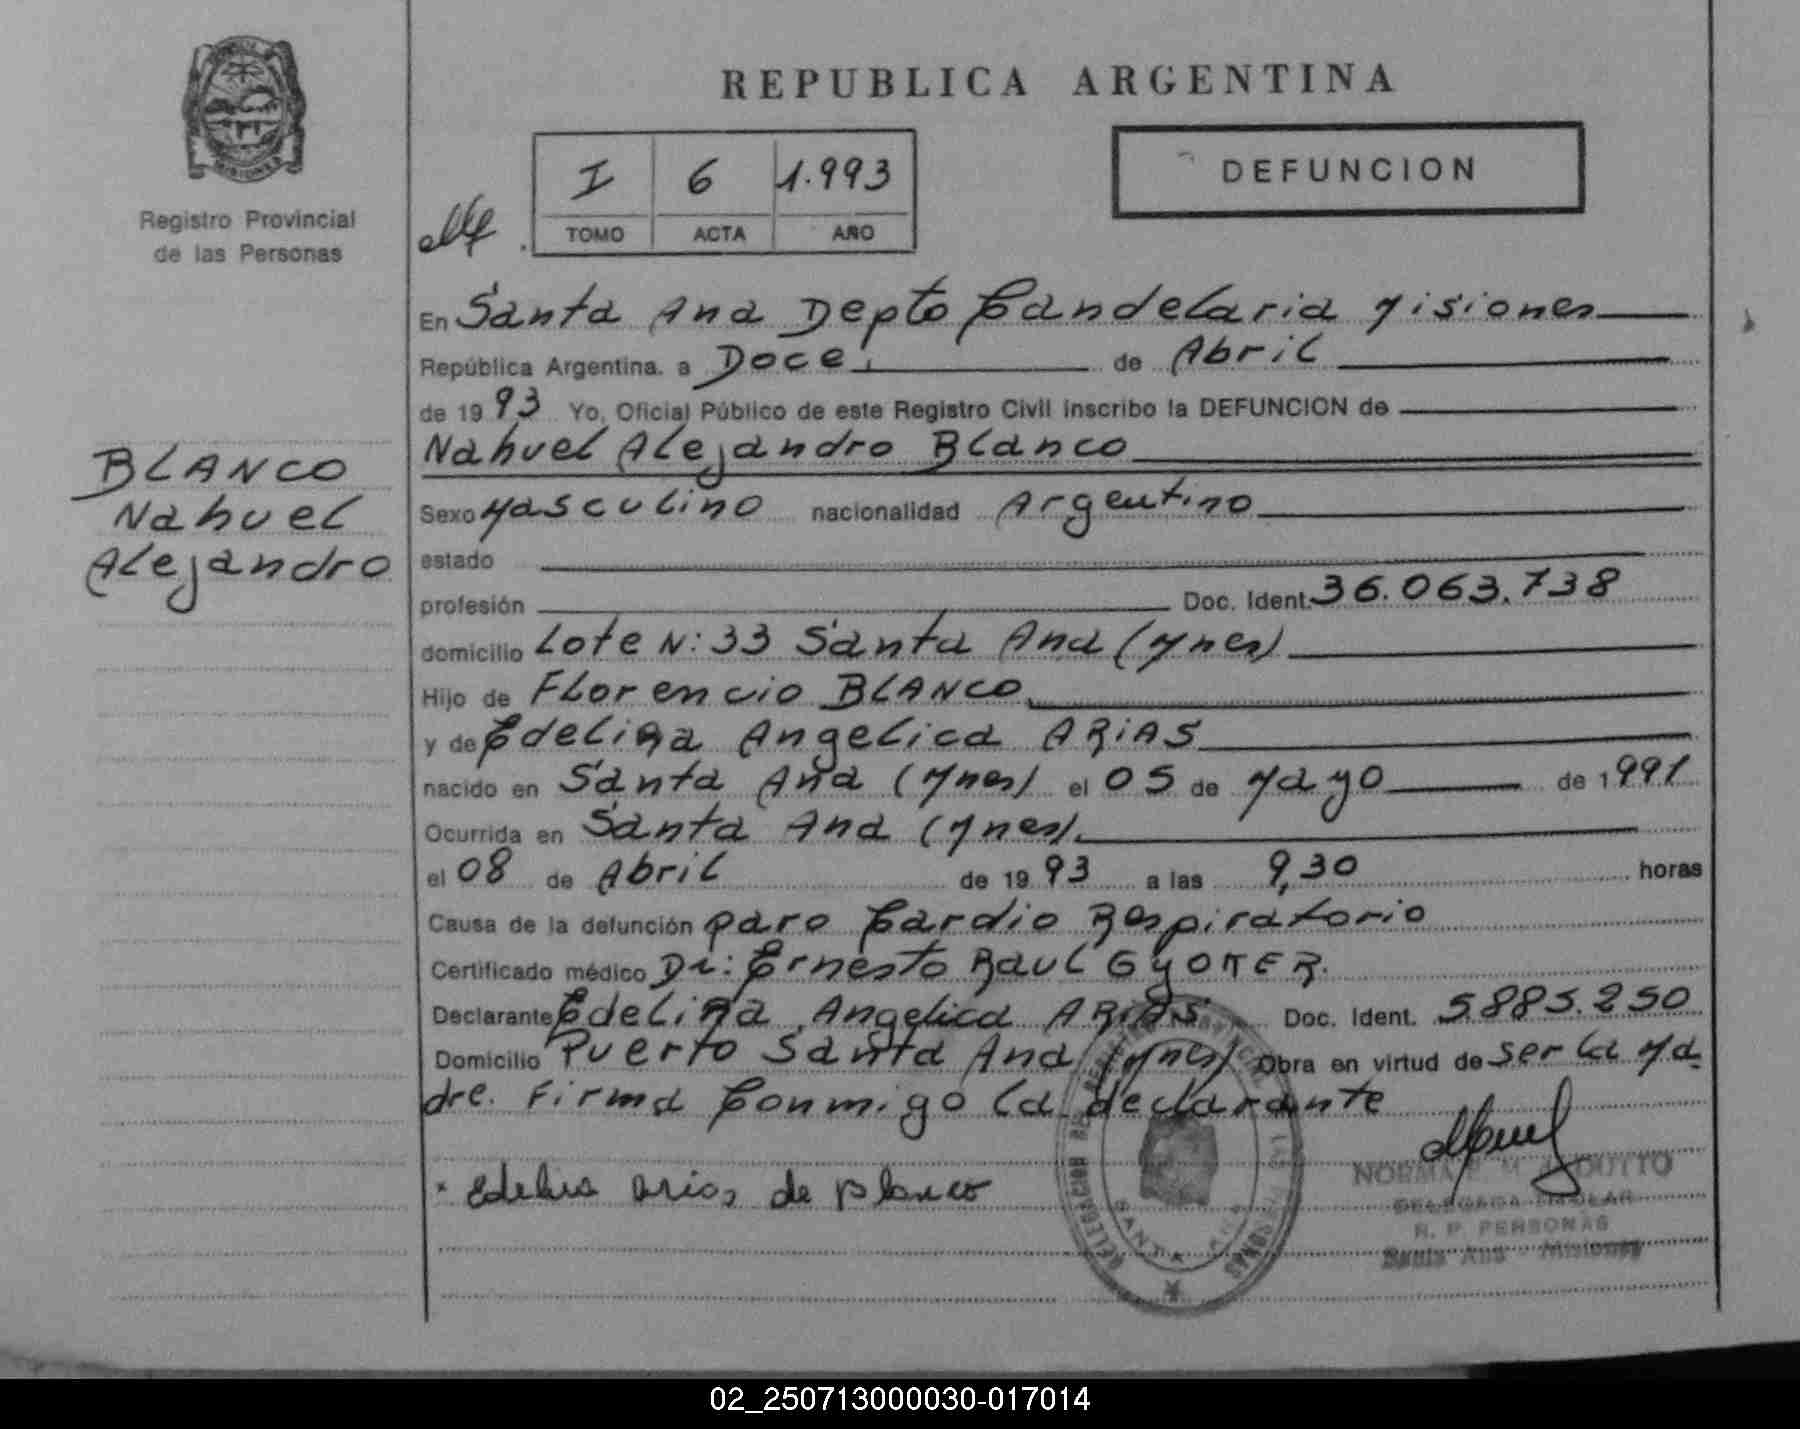 REPUBLICA ARGENTINA
MISIONES
Registro Provincial
de las Personas
I 6 1.993
TOMO ACTA AÑO
DEFUNCION
BLANCO
Nahuel
Alejandro
En Santa Ana Depto Candelaria Misiones
República Argentina. a Doce de Abril
de 1993 Yo, Oficial Público de este Registro Civil inscribo la DEFUNCION de
Nahuel Alejandro Blanco
Sexo Masculino nacionalidad Argentino
estado
profesión Doc. Ident. 36.063.738
domicilio Lote N: 33 Santa Ana (Mnes)
Hijo de Florencio BLANCO
y de Edelira Angelica ARIAS
nacido en Santa Ana (Mnes) el 05 de Mayo de 1991
Ocurrida en Santa Ana (Mnes).
el 08 de Abril de 1993 a las 9,30 horas
Causa de la defunción paro Cardio Respiratorio
Certificado médico Dr: Ernesto Raul
Declarante Edelira Angelica ARIAS Doc. Ident. 5.885.250
Domicilio Puerto Santa Ana (Mnes) Obra en virtud de ser la Ma
dre. Firma Conmigo la declarante
Arias de Blanco
DELEGACION DEL REGISTRO PROVINCIAL DE LAS PERSONAS
SANTA ANA
NORMA
DELEGADA TITULAR
R. P. PERSONAS
Santa Ana - Misiones
02_250713000030-017014